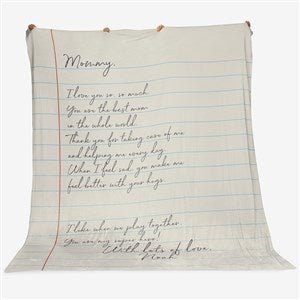 Mommy,
I love you so, so much.
You are the best mom
in the whole world.
Thank you for taking care of me
and helping me every day.
When I feel sad, you make me
feel better with your hugs.
I like when we play together.
You are my super hero.
With lots of love,
Noah